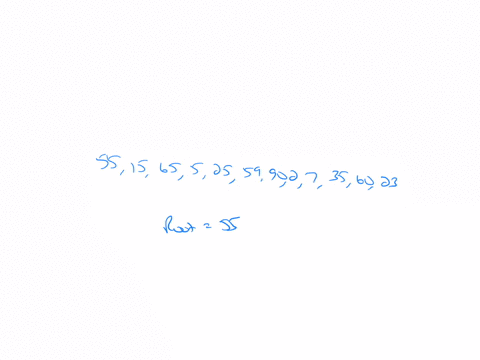 55, 15, 65, 5, 25, 59, 90, 2, 7, 35, 60, 23
Root = 55